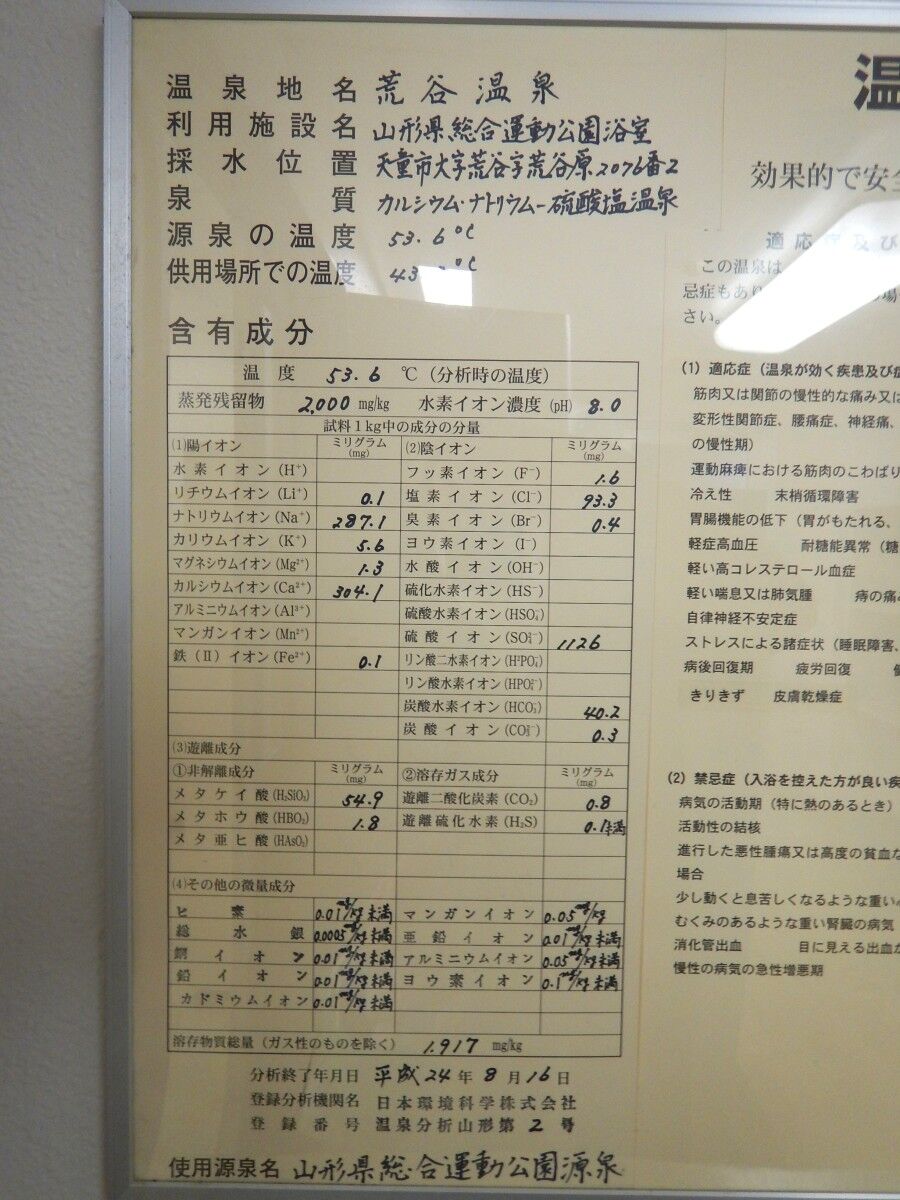 温泉地名 荒谷温泉
利用施設名 山形県総合運動公園浴室
採水位置 天童市大字荒谷字荒谷原2076番2
泉質 カルシウム・ナトリウム-硫酸塩温泉
源泉の温度 53.6℃
供用場所での温度 43. ℃
含有成分
温度 53.6 ℃(分析時の温度)
蒸発残留物 2,000 mg/kg 水素イオン濃度(pH) 8.0
試料1kg中の成分の分量
(1)陽イオン ミリグラム(mg) (2)陰イオン ミリグラム(mg)
水素イオン(H⁺) フッ素イオン(F⁻) 1.6
リチウムイオン(Li⁺) 0.1 塩素イオン(Cl⁻) 93.3
ナトリウムイオン(Na⁺) 287.1 臭素イオン(Br⁻) 0.4
カリウムイオン(K⁺) 5.6 ヨウ素イオン(I⁻)
マグネシウムイオン(Mg²⁺) 1.3 水酸イオン(OH⁻)
カルシウムイオン(Ca²⁺) 304.1 硫化水素イオン(HS⁻)
アルミニウムイオン(Al³⁺) 硫酸水素イオン(HSO₄⁻)
マンガンイオン(Mn²⁺) 硫酸イオン(SO₄²⁻) 1126
鉄(II)イオン(Fe²⁺) 0.1 リン酸二水素イオン(H²PO₄⁻)
リン酸水素イオン(HPO₄²⁻)
炭酸水素イオン(HCO₃⁻) 40.2
炭酸イオン(CO₃²⁻) 0.3
(3)遊離成分
①非解離成分 ミリグラム(mg) ②溶存ガス成分 ミリグラム(mg)
メタケイ酸(H₂SiO₃) 54.9 遊離二酸化炭素(CO₂) 0.8
メタホウ酸(HBO₂) 1.8 遊離硫化水素(H₂S) 0.1未満
メタ亜ヒ酸(HAsO₂)
(4)その他の微量成分
ヒ素 0.01mg/kg未満 マンガンイオン 0.05mg/kg
総水銀 0.0005mg/kg未満 亜鉛イオン 0.01mg/kg未満
銅イオン 0.01mg/kg未満 アルミニウムイオン 0.05mg/kg未満
鉛イオン 0.01mg/kg未満 ヨウ素イオン 0.1mg/kg未満
カドミウムイオン 0.01mg/kg未満
溶存物質総量(ガス性のものを除く) 1.917 mg/kg
分析終了年月日 平成24年8月16日
登録分析機関名 日本環境科学株式会社
登録番号 温泉分析山形第2号
使用源泉名 山形県総合運動公園源泉
温
効果的で安全
適応症及び
この温泉は
忌症もあり
さい。
(1) 適応症(温泉が効く疾患及び症
筋肉又は関節の慢性的な痛み又は
変形性関節症、腰痛症、神経痛、
の慢性期)
運動麻痺における筋肉のこわばり
冷え性 末梢循環障害
胃腸機能の低下(胃がもたれる、
軽症高血圧 耐糖能異常(糖
軽い高コレステロール血症
軽い喘息又は肺気腫 痔の痛み
自律神経不安定症
ストレスによる諸症状(睡眠障害、
病後回復期 疲労回復
きりきず 皮膚乾燥症
(2) 禁忌症(入浴を控えた方が良い疾
病気の活動期(特に熱のあるとき)
活動性の結核
進行した悪性腫瘍又は高度の貧血な
場合
少し動くと息苦しくなるような重い
むくみのあるような重い腎臓の病気
消化管出血 目に見える出血が
慢性の病気の急性増悪期